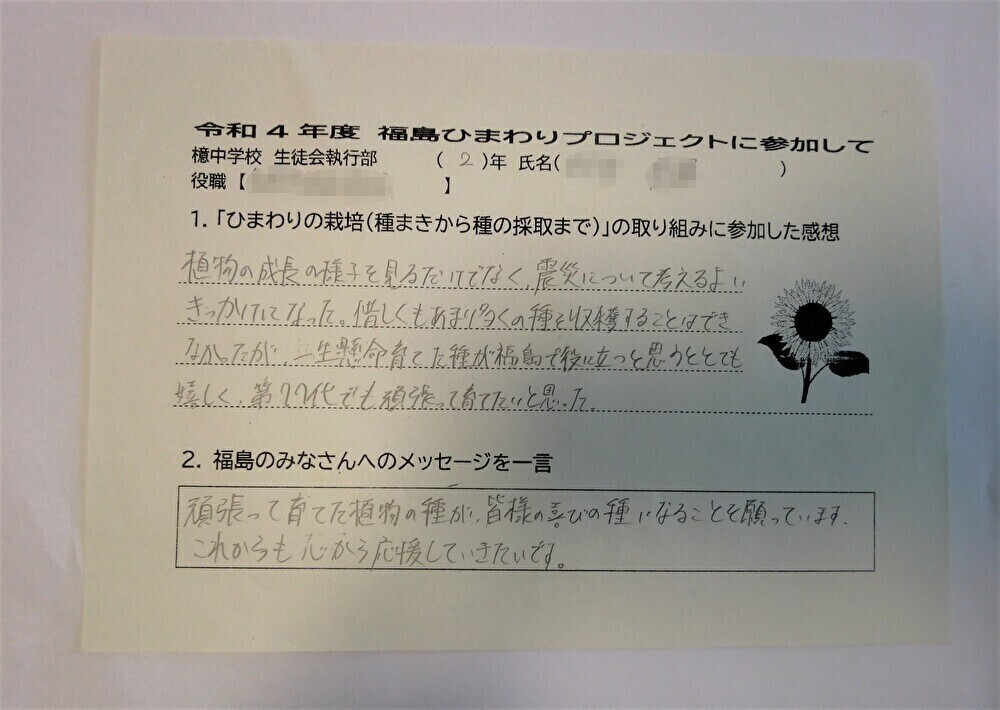 令和4年度 福島ひまわりプロジェクトに参加して
檍中学校 生徒会執行部 (2)年 氏名( )
役職【 】
1.「ひまわりの栽培(種まきから種の採取まで)」の取り組みに参加した感想
植物の成長の様子を見るだけでなく、震災について考えるよい
きっかけになった。惜しくもあまり多くの種を収穫することはでき
なかったが、一生懸命育てた種が福島で役に立つと思うととても
嬉しく、第77代でも頑張って育てたいと思った。
2. 福島のみなさんへのメッセージを一言
頑張って育てた植物の種が、皆様の喜びの種になることを願っています。
これからも心から応援していきたいです。